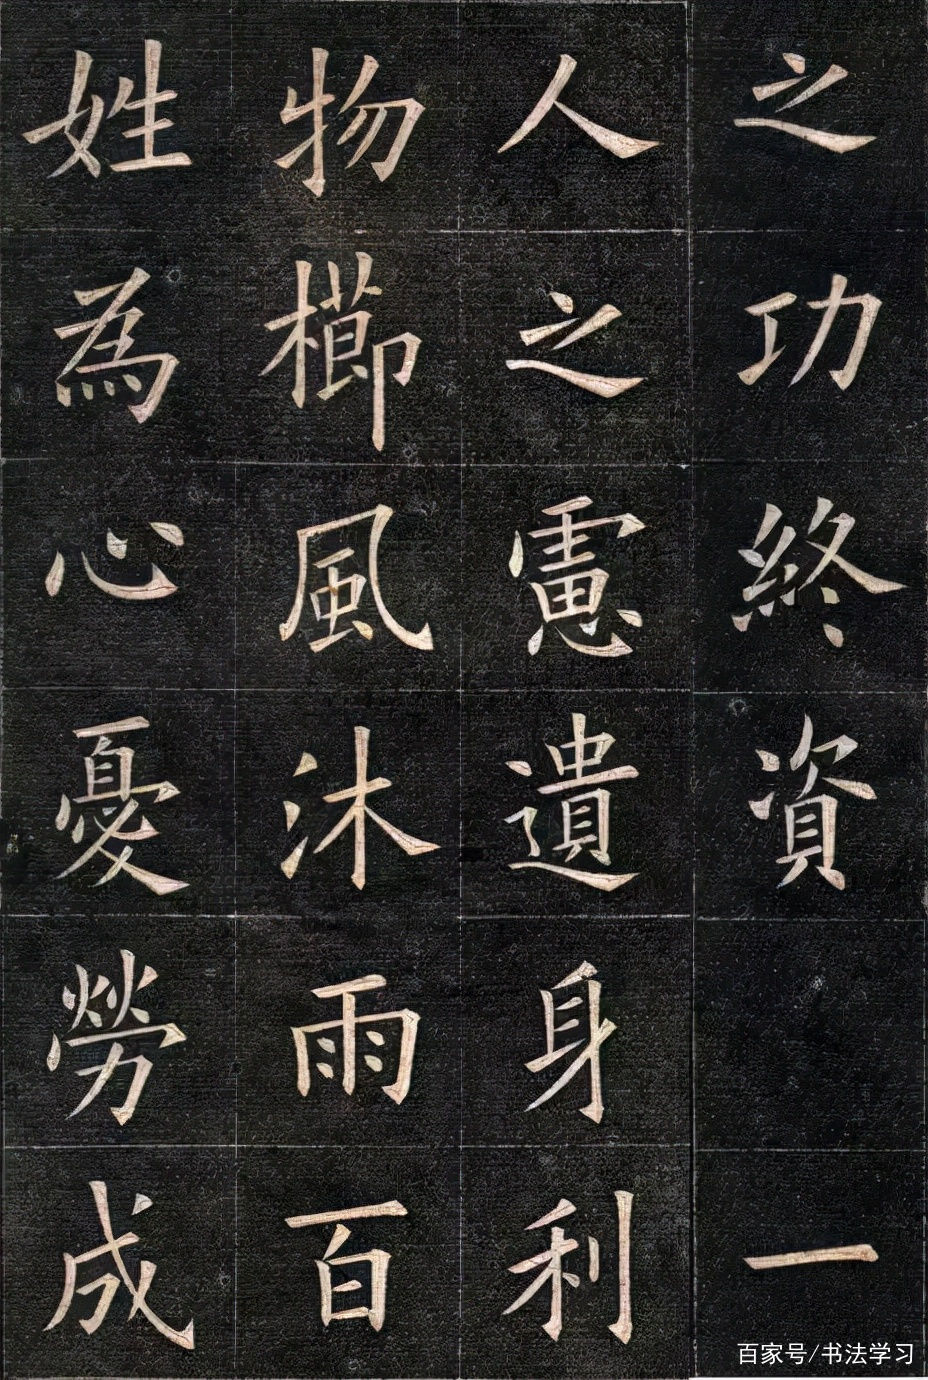 之功終資 一
人之慮遺身利
物櫛風沐雨百
姓為心憂勞成
百家号/书法学习